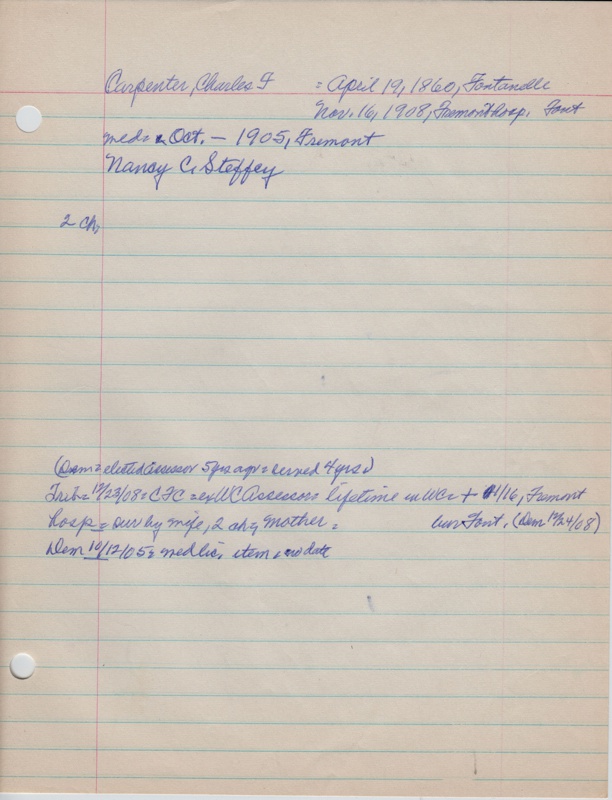 Carpenter, Charles F = April 19, 1860, Fontanelle
Nov. 16, 1908, Fremont hosp. Font
med= Oct. — 1905, Fremont
Nancy C. Steffey
2 ch,
(Dem= elected assessor 5 yrs ago = served 4 yrs.)
Trib= 12/23/08= CFC = ex WC Assessor= lifetime in WC= + 11/16, Fremont
hosp = sur by wife, 2 ch, mother = bur Font. (Dem 12/24/08)
Dem 10/12/05= med lic, item no date